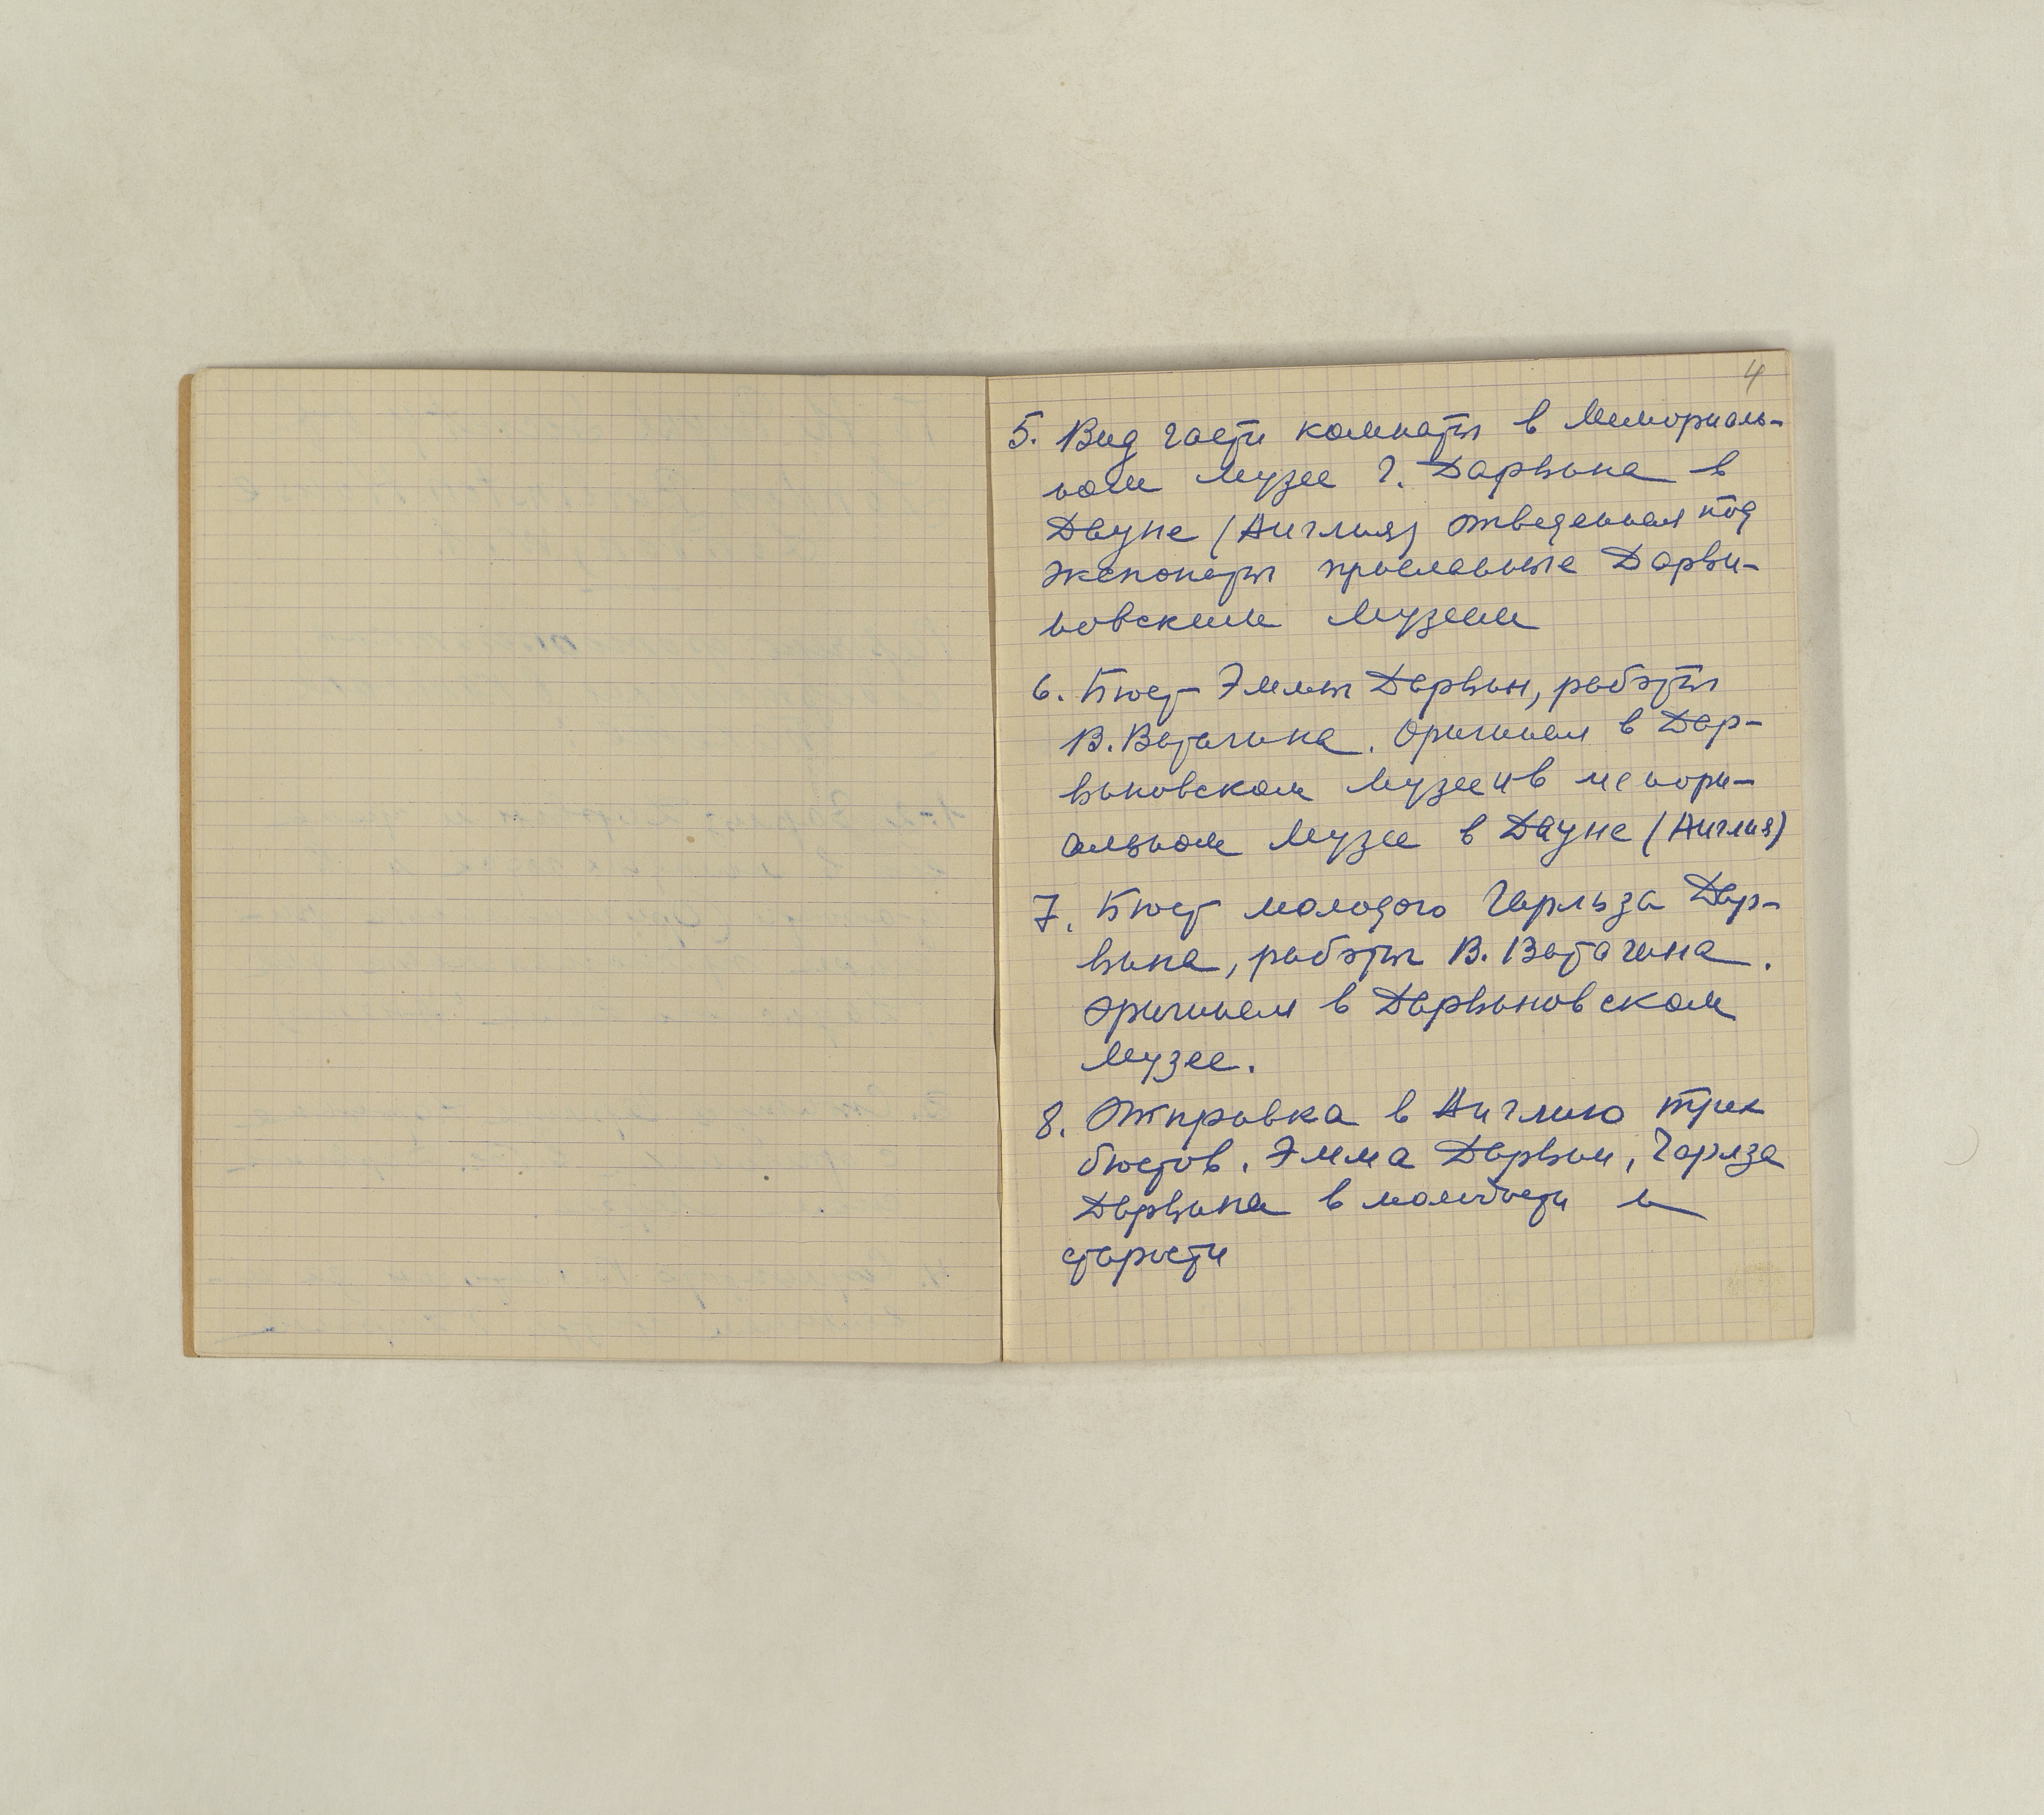 4
5. Вид части комнаты в Мемориаль-
ном музее Ч. Дарвина в
Дауне (Англия) отведенная под
экспонаты присланные Дарви-
новским Музеем
6. Бюст Эммы Дарвин, работы
В. Ватагина. Оригинал в Дар-
виновском Музее и в мемори-
альном Музее в Дауне (Англия)
7. Бюст молодого Чарльза Дар-
вина, работы В. Ватагина.
Оригинал в Дарвиновском
Музее.
8. Отправка в Англию трех
бюстов. Эмма Дарвин, Чарлза
Дарвина в молодости и
старости